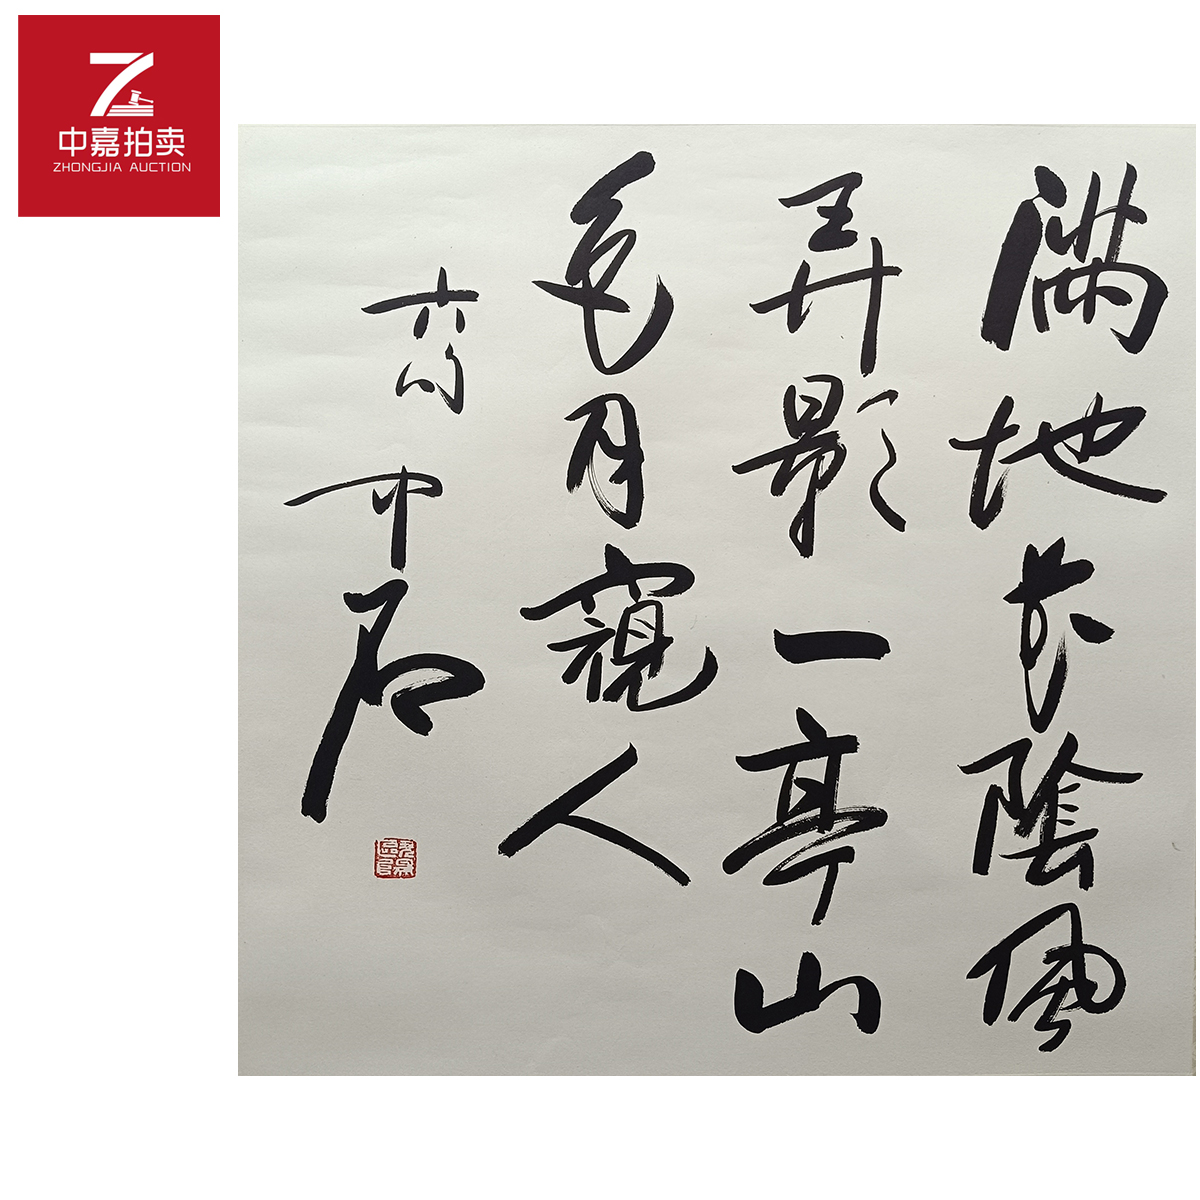 中嘉拍卖
ZHONGJIA AUCTION
滿地花陰風
弄影一亭山
色月窺人
中石